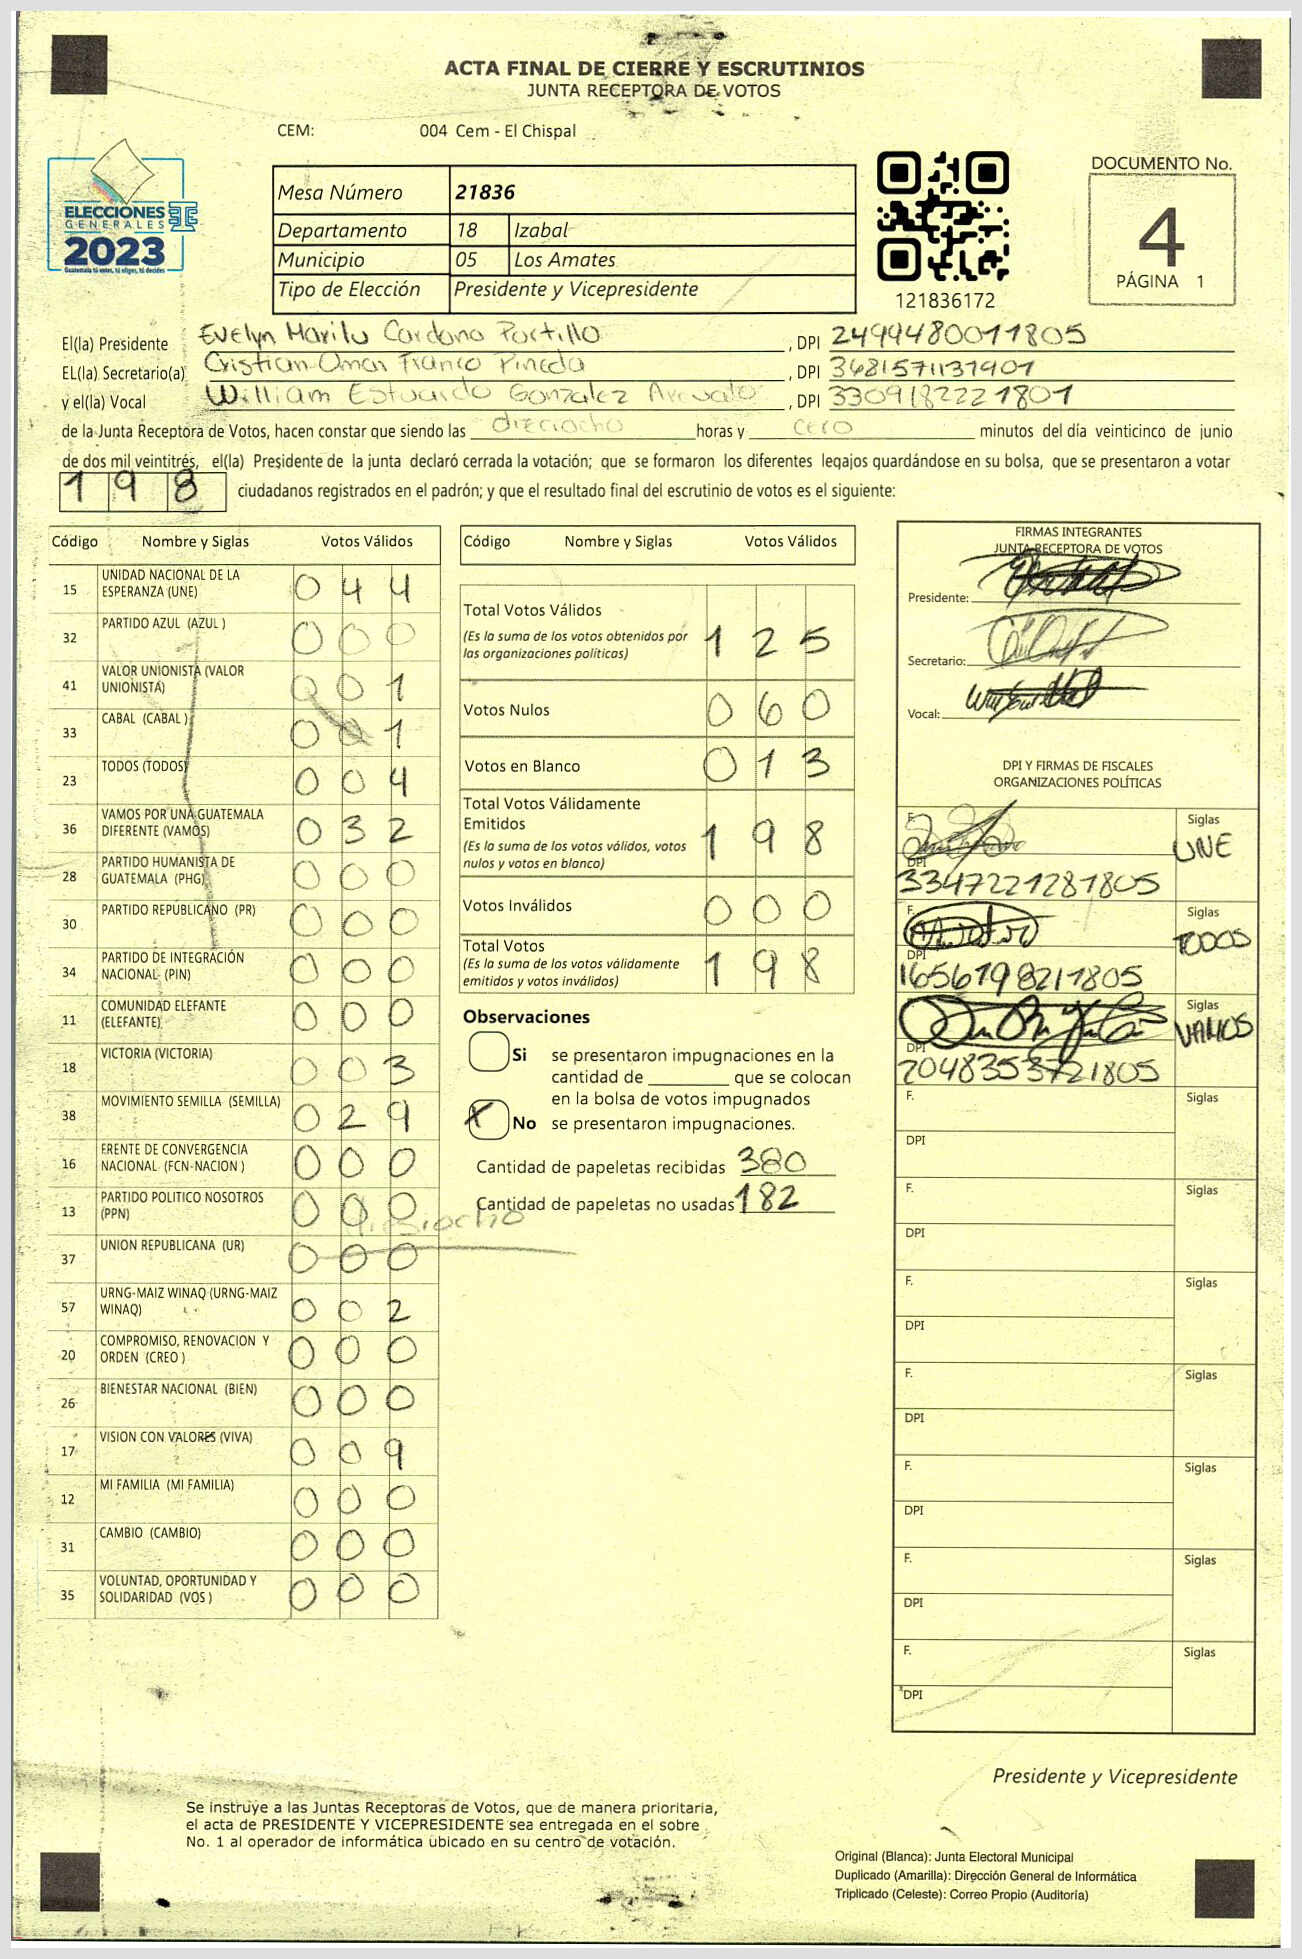 ACTA FINAL DE CIERRE Y ESCRUTINIOS
JUNTA RECEPTORA DE VOTOS
CEM: 004 Cem - El Chispal
ELECCIONES
GENERALES
2023
Guatemala tú votas, tú eliges, tú decides
Mesa Número 21836
Departamento 18 Izabal
Municipio 05 Los Amates
Tipo de Elección Presidente y Vicepresidente
121836172
DOCUMENTO No.
4
PÁGINA 1
El(la) Presidente Evelyn Marilu Cardona Portillo, DPI 2499480011805
EL(la) Secretario(a) Cristian Omar Franco Pineda, DPI 3681571131901
y el(la) Vocal William Estuardo Gonzalez Arevalo, DPI 3309182221801
de la Junta Receptora de Votos, hacen constar que siendo las dieciocho horas y cero minutos del día veinticinco de junio
de dos mil veintitrés, el(la) Presidente de la junta declaró cerrada la votación; que se formaron los diferentes legajos guardándose en su bolsa, que se presentaron a votar
198 ciudadanos registrados en el padrón; y que el resultado final del escrutinio de votos es el siguiente:
Código Nombre y Siglas Votos Válidos
15 UNIDAD NACIONAL DE LA ESPERANZA (UNE) 0 4 4
32 PARTIDO AZUL (AZUL ) 0 0 0
41 VALOR UNIONISTA (VALOR UNIONISTA) 0 0 1
33 CABAL (CABAL ) 0 0 1
23 TODOS (TODOS) 0 0 4
36 VAMOS POR UNA GUATEMALA DIFERENTE (VAMOS) 0 3 2
28 PARTIDO HUMANISTA DE GUATEMALA (PHG) 0 0 0
30 PARTIDO REPUBLICANO (PR) 0 0 0
34 PARTIDO DE INTEGRACIÓN NACIONAL (PIN) 0 0 0
11 COMUNIDAD ELEFANTE (ELEFANTE) 0 0 0
18 VICTORIA (VICTORIA) 0 0 3
38 MOVIMIENTO SEMILLA (SEMILLA) 0 2 9
16 FRENTE DE CONVERGENCIA NACIONAL (FCN-NACION ) 0 0 0
13 PARTIDO POLITICO NOSOTROS (PPN) 0 0 0
37 UNION REPUBLICANA (UR) 0 0 0
57 URNG-MAIZ WINAQ (URNG-MAIZ WINAQ) 0 0 2
20 COMPROMISO, RENOVACION Y ORDEN (CREO ) 0 0 0
26 BIENESTAR NACIONAL (BIEN) 0 0 0
17 VISION CON VALORES (VIVA) 0 0 9
12 MI FAMILIA (MI FAMILIA) 0 0 0
31 CAMBIO (CAMBIO) 0 0 0
35 VOLUNTAD, OPORTUNIDAD Y SOLIDARIDAD (VOS ) 0 0 0
Código Nombre y Siglas Votos Válidos
Total Votos Válidos 1 2 5
(Es la suma de los votos obtenidos por
las organizaciones políticas)
Votos Nulos 0 6 0
Votos en Blanco 0 1 3
Total Votos Válidamente
Emitidos 1 9 8
(Es la suma de los votos válidos, votos
nulos y votos en blanco)
Votos Inválidos 0 0 0
Total Votos 1 9 8
(Es la suma de los votos válidamente
emitidos y votos inválidos)
Observaciones
Si se presentaron impugnaciones en la
cantidad de ________ que se colocan
en la bolsa de votos impugnados
X No se presentaron impugnaciones.
Cantidad de papeletas recibidas 380
Cantidad de papeletas no usadas 182
FIRMAS INTEGRANTES
JUNTA RECEPTORA DE VOTOS
Presidente:
Secretario:
Vocal:
DPI Y FIRMAS DE FISCALES
ORGANIZACIONES POLÍTICAS
F. Siglas
UNE
DPI
3347221281805
F. Siglas
TODOS
DPI
1656198211805
Siglas
VAMOS
DPI
2048353721805
F. Siglas
DPI
F. Siglas
DPI
F. Siglas
DPI
F. Siglas
DPI
F. Siglas
DPI
F. Siglas
DPI
F. Siglas
DPI
Presidente y Vicepresidente
Se instruye a las Juntas Receptoras de Votos, que de manera prioritaria,
el acta de PRESIDENTE Y VICEPRESIDENTE sea entregada en el sobre
No. 1 al operador de informática ubicado en su centro de votación.
Original (Blanca): Junta Electoral Municipal
Duplicado (Amarilla): Dirección General de Informática
Triplicado (Celeste): Correo Propio (Auditoría)